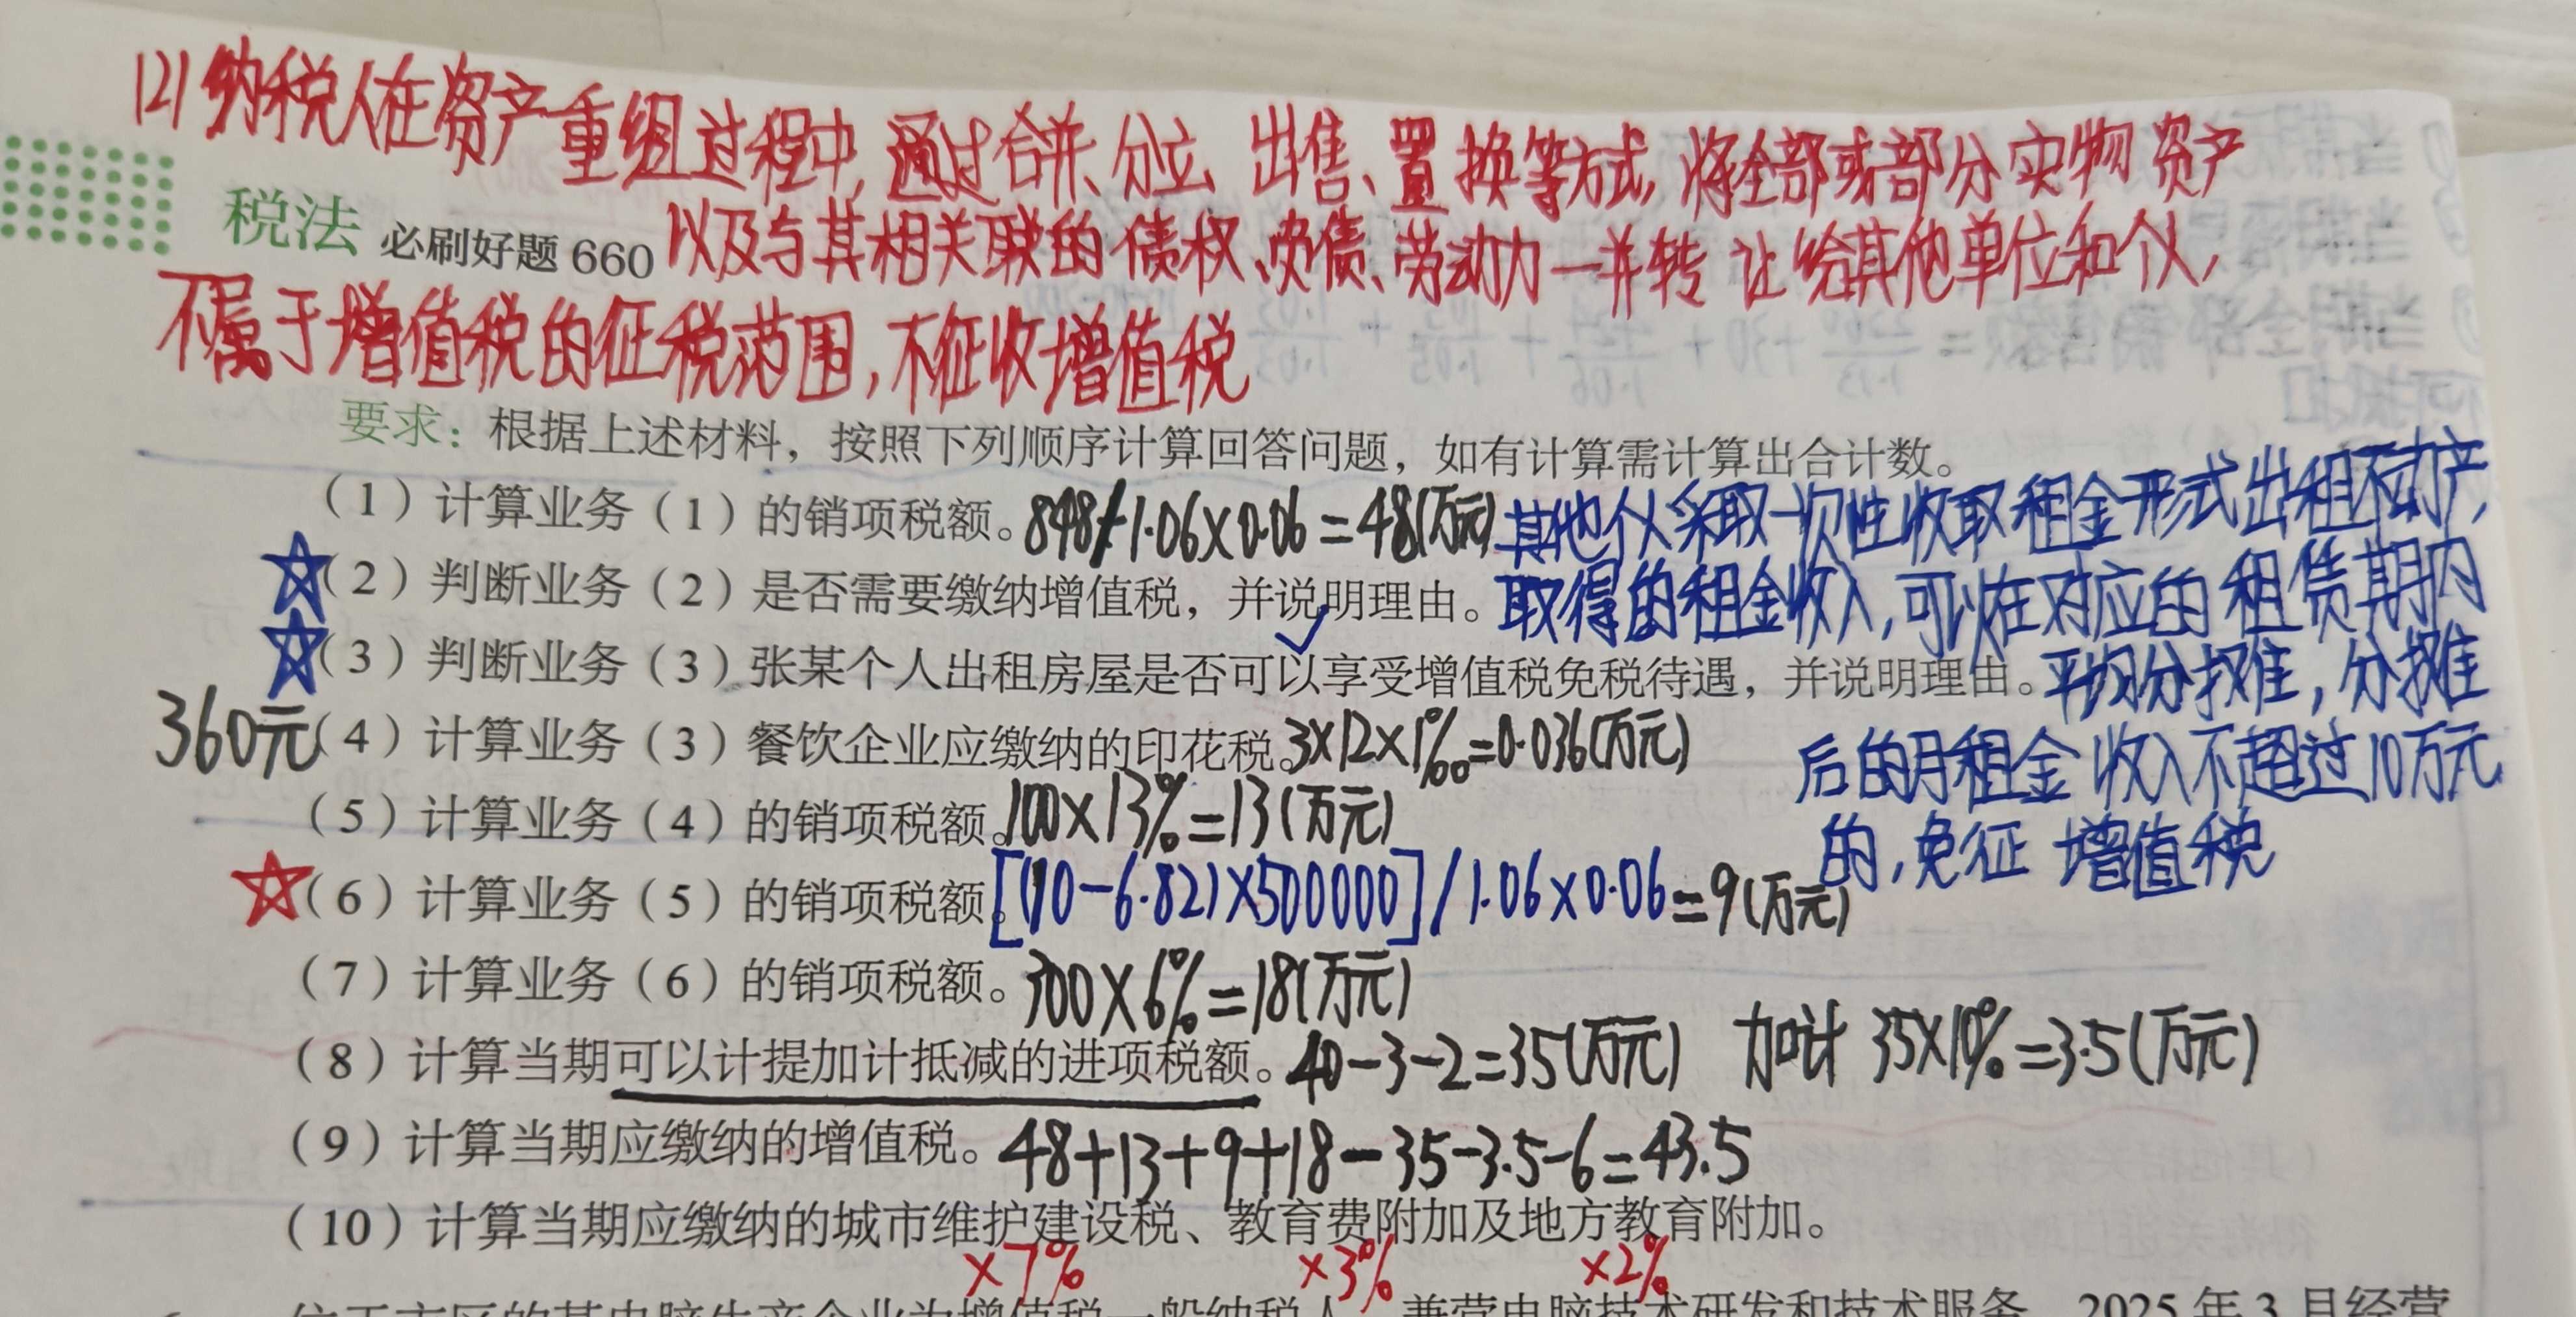 (2) 纳税人在资产重组过程中,通过合并、分立、出售、置换等方式,将全部或部分实物资产
税法 必刷好题 660 以及与其相关联的债权、负债、劳动力一并转让给其他单位和个人,
不属于增值税的征税范围,不征收增值税
要求：根据上述材料，按照下列顺序计算回答问题，如有计算需计算出合计数。
（1）计算业务（1）的销项税额。848/1.06×0.06=48(万元) 其他个人采取一次性收取租金形式出租不动产,
（2）判断业务（2）是否需要缴纳增值税，并说明理由。取得的租金收入,可以在对应的租赁期内
（3）判断业务（3）张某个人出租房屋是否可以享受增值税免税待遇，并说明理由。平均分摊,分摊
360元（4）计算业务（3）餐饮企业应缴纳的印花税。3×12×1‰=0.036(万元) 后的月租金收入不超过10万元
（5）计算业务（4）的销项税额。100×13%=13(万元) 的,免征增值税
（6）计算业务（5）的销项税额。[(10-6.82)×500000]/1.06×0.06=9(万元)
（7）计算业务（6）的销项税额。300×6%=18(万元)
（8）计算当期可以计提加计抵减的进项税额。40-3-2=35(万元) 加计 35×10%=3.5(万元)
（9）计算当期应缴纳的增值税。48+13+9+18-35-3.5-6=43.5
（10）计算当期应缴纳的城市维护建设税、教育费附加及地方教育附加。
×7% ×3% ×2%
位于市区的某电脑生产企业为增值税一般纳税人，兼营电脑技术研发和技术服务，2025年3月经营